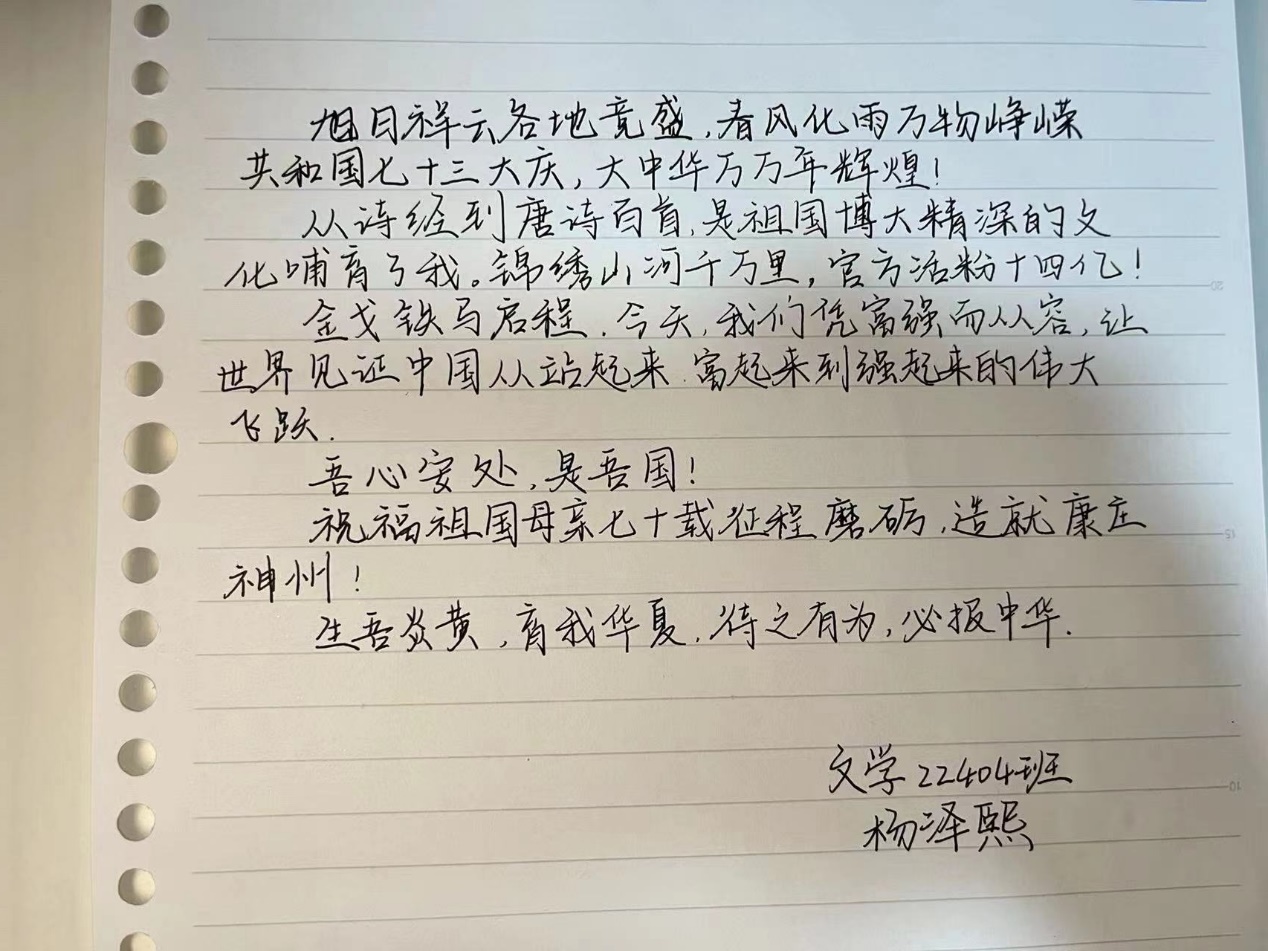 旭日祥云各地竟盛,春风化雨万物峥嵘
共和国七十三大庆,大中华万万年辉煌!
从诗经到唐诗百首,是祖国博大精深的文
化哺育了我。锦绣山河千万里,官方活粉十四亿!
金戈铁马启程.今天,我们凭富强而从容,让
世界见证中国从站起来.富起来到强起来的伟大
飞跃.
吾心安处,是吾国!
祝福祖国母亲七十载征程磨砺,造就康庄
神州!
生吾炎黄,育我华夏.待之有为,必报中华.
文学22404班
杨泽熙
20
15
10